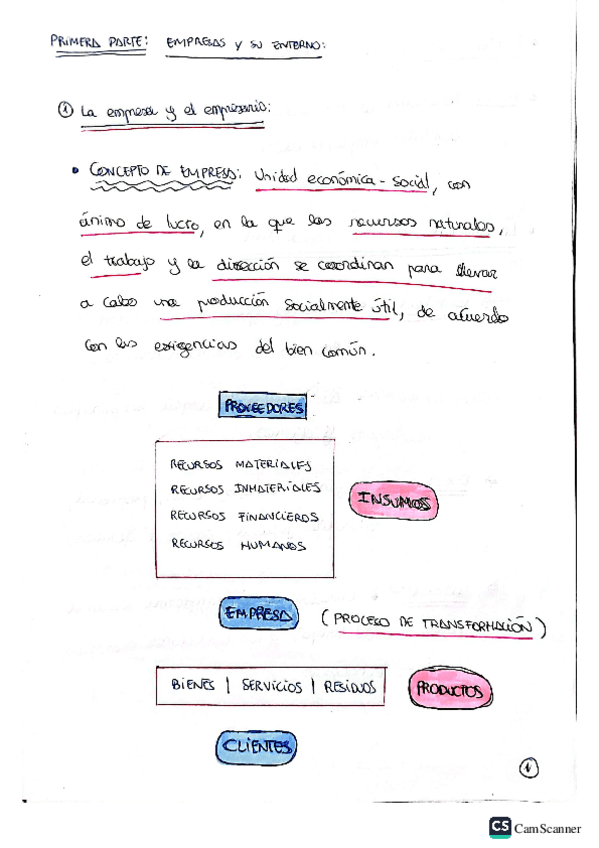 PRIMERA PARTE: EMPRESAS y SU ENTORNO:
① La empresa y el empresario:
• CONCEPTO DE EMPRESA: Unidad económica - social, con
ánimo de lucro, en la que los recursos naturales,
el trabajo y la dirección se coordinan para llevar
a cabo una producción socialmente útil, de acuerdo
con las exigencias del bien común.
PROVEEDORES
RECURSOS MATERIALES
RECURSOS INMATERIALES
RECURSOS FINANCIEROS
RECURSOS HUMANOS
INSUMOS
EMPRESA (PROCESO DE TRANSFORMACIÓN)
BIENES | SERVICIOS | RESIDUOS PRODUCTOS
CLIENTES
1
CS CamScanner